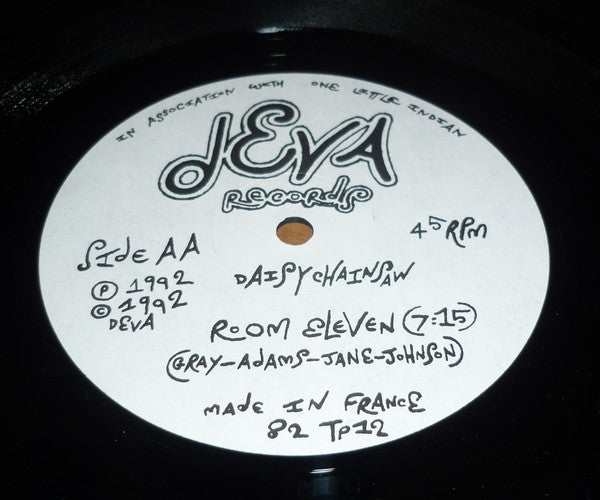 IN ASSOCIATION WITH ONE LITTLE INDIAN
dEVA
RECORdS
SIdE AA
45 RPM
Ⓟ 1992
© 1992
DEVA
DAISYCHAINSAW
ROOM ELEVEN (7:15)
(GRAY-ADAMS-JANE-JOHNSON)
MADE IN FRANCE
82 TP12